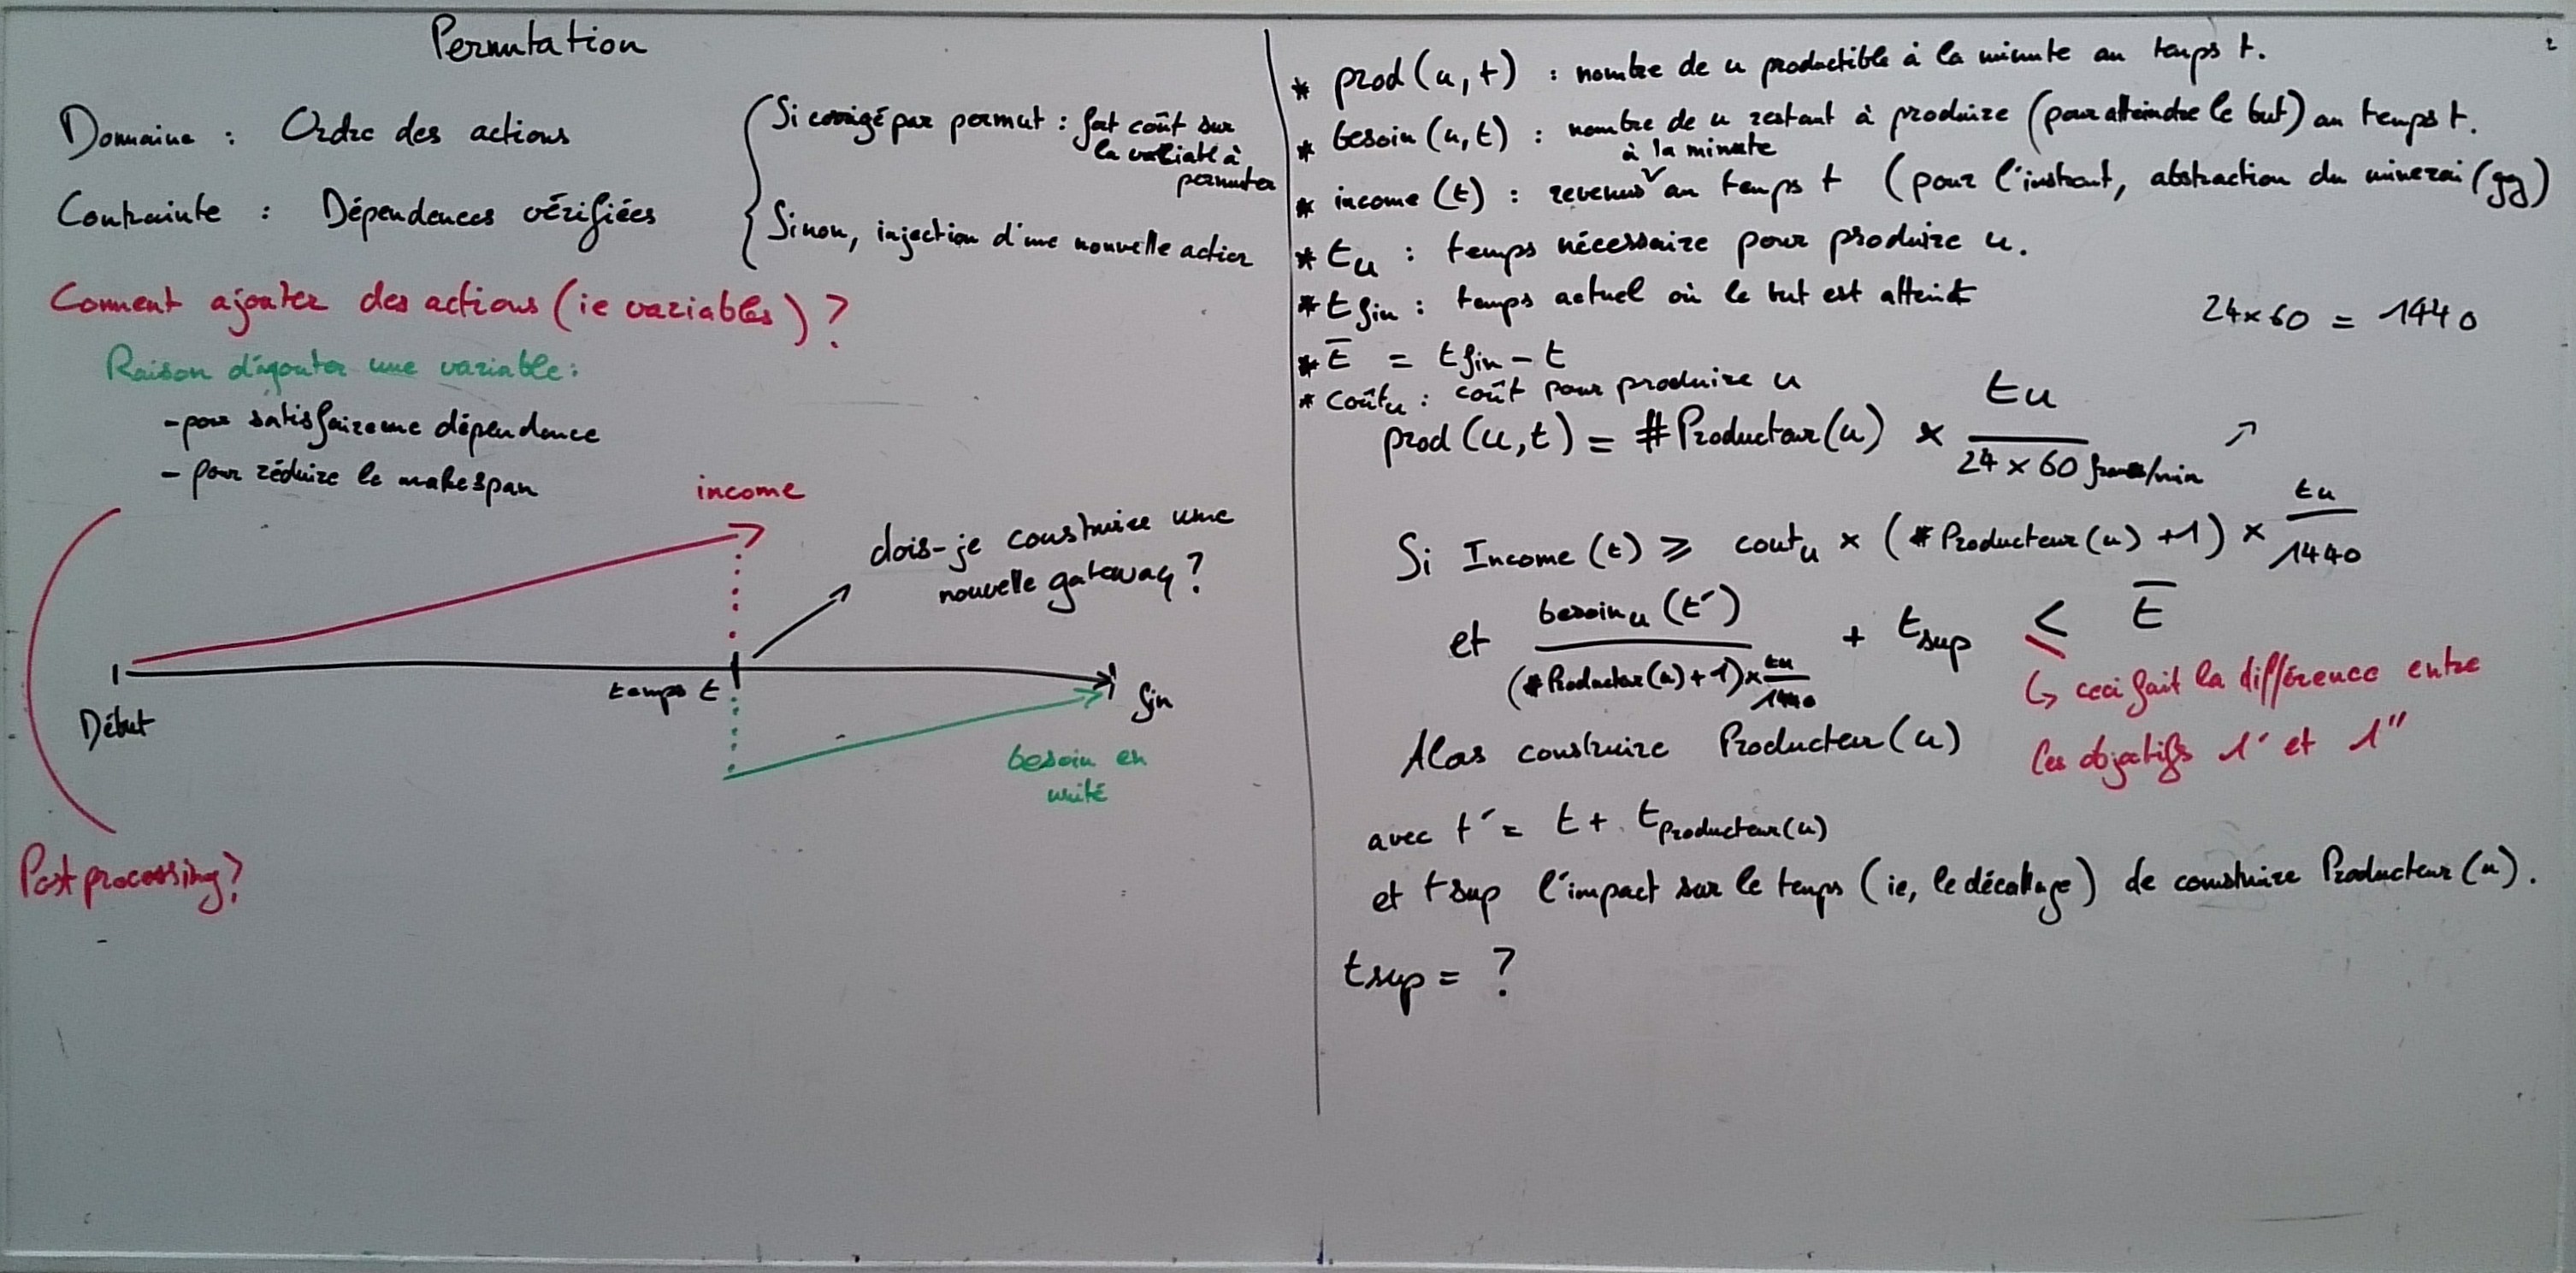 Permutation
Domaine : Ordre des actions
Contrainte : Dépendences vérifiées
Si corrigé par permut : fort coût sur
la variable à
permuter
Sinon, injection d'une nouvelle action
Comment ajouter des actions (ie variables) ?
Raison d'ajouter une variable :
- pour satisfaire une dépendence
- pour réduire le makespan
income
dois-je construire une
nouvelle gateway ?
Début
temps t
fin
besoin en
unité
Post processing ?
* prod (u, t) : nombre de u productible à la minute au temps t.
* besoin (u, t) : nombre de u restant à produire (pour atteindre le but) au temps t.
à la minute
* income (t) : revenus au temps t (pour l'instant, abstraction du minerai (gg)
* tu : temps nécessaire pour produire u.
* tfin : temps actuel où le but est atteint
24×60 = 1440
* t̄ = tfin - t
* Coûtu : coût pour produire u
prod (u, t) = #Producteur(u) × tu / 24 × 60 frames/min
Si Income (t) ⩾ coutu × (#Producteur(u) +1) × tu / 1440
et besoinu (t') / (#Producteur(u)+1)× tu / 1440 + tsup < t̄
↳ ceci fait la différence entre
les objectifs 1' et 1''
Alors construire Producteur(u)
avec t' = t + tProducteur(u)
et tsup l'impact sur le temps (ie, le décallage) de construire Producteur(u).
tsup = ?